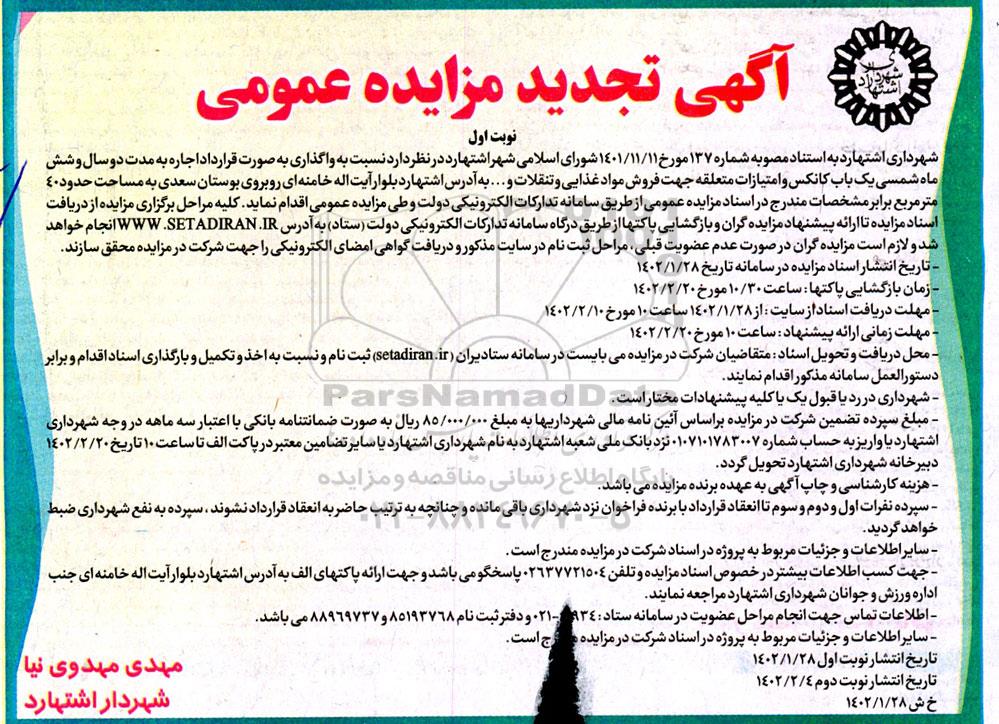 شهرداری اشتهارد
آگهی تجدید مزایده عمومی
نوبت اول
شهرداری اشتهارد به استناد مصوبه شماره ۱۳۷ مورخ ۱۴۰۱/۱۱/۱۱ شورای اسلامی شهر اشتهارد در نظر دارد نسبت به واگذاری به صورت قرارداد اجاره به مدت دو سال و شش
ماه شمسی یک باب کانکس و امتیازات متعلقه جهت فروش مواد غذایی و تنقلات و... به آدرس اشتهارد بلوار آیت اله خامنه ای روبروی بوستان سعدی به مساحت حدود ۴۰
متر مربع برابر مشخصات مندرج در اسناد مزایده عمومی از طریق سامانه تدارکات الکترونیکی دولت و طی مزایده عمومی اقدام نماید. کلیه مراحل برگزاری مزایده از دریافت
اسناد مزایده تا ارائه پیشنهاد مزایده گران و بازگشایی پاکتها از طریق درگاه سامانه تدارکات الکترونیکی دولت (ستاد) به آدرس WWW.SETADIRAN.IR انجام خواهد
شد و لازم است مزایده گران در صورت عدم عضویت قبلی، مراحل ثبت نام در سایت مذکور و دریافت گواهی امضای الکترونیکی را جهت شرکت در مزایده محقق سازند.
- تاریخ انتشار اسناد مزایده در سامانه تاریخ ۱۴۰۲/۱/۲۸
- زمان بازگشایی پاکتها: ساعت ۱۰/۳۰ مورخ ۱۴۰۲/۲/۲۰
- مهلت دریافت اسناد از سایت: از ۱۴۰۲/۱/۲۸ ساعت ۱۰ مورخ ۱۴۰۲/۲/۱۰
- مهلت زمانی ارائه پیشنهاد: ساعت ۱۰ مورخ ۱۴۰۲/۲/۲۰
- محل دریافت و تحویل اسناد: متقاضیان شرکت در مزایده می بایست در سامانه ستاد ایران (setadiran.ir) ثبت نام و نسبت به اخذ و تکمیل و بارگذاری اسناد اقدام و برابر
دستورالعمل سامانه مذکور اقدام نمایند.
- شهرداری در رد یا قبول یک یا کلیه پیشنهادات مختار است.
ParsNamadData
- مبلغ سپرده تضمین شرکت در مزایده براساس آئین نامه مالی شهرداریها به مبلغ ۸۵/۰۰۰/۰۰۰ ریال به صورت ضمانتنامه بانکی با اعتبار سه ماهه در وجه شهرداری
اشتهارد یا واریز به حساب شماره ۰۱۰۷۱۰۱۷۸۳۰۰۷ نزد بانک ملی شعبه اشتهارد به نام شهرداری اشتهارد یا سایر تضامین معتبر در پاکت الف تا ساعت ۱۰ تاریخ ۱۴۰۲/۲/۲۰
دبیرخانه شهرداری اشتهارد تحویل گردد.
پایگاه اطلاع رسانی مناقصه و مزایده
- هزینه کارشناسی و چاپ آگهی به عهده برنده مزایده می باشد.
- سپرده نفرات اول و دوم و سوم تا انعقاد قرارداد با برنده فراخوان نزد شهرداری باقی مانده و چنانچه به ترتیب حاضر به انعقاد قرارداد نشوند، سپرده به نفع شهرداری ضبط
۰۲۱-۸۸۳۴۹۶۷۰-۵
خواهد گردید.
- سایر اطلاعات و جزئیات مربوط به پروژه در اسناد شرکت در مزایده مندرج است.
- جهت کسب اطلاعات بیشتر در خصوص اسناد مزایده و تلفن ۰۲۶۳۷۷۲۱۵۰۴ پاسخگو می باشد و جهت ارائه پاکتهای الف به آدرس اشتهارد بلوار آیت اله خامنه ای جنب
اداره ورزش و جوانان شهرداری اشتهارد مراجعه نمایند.
- اطلاعات تماس جهت انجام مراحل عضویت در سامانه ستاد: ۹۳۴-۰۲۱ و دفتر ثبت نام ۸۵۱۹۳۷۶۸ و ۸۸۹۶۹۷۳۷ می باشد.
- سایر اطلاعات و جزئیات مربوط به پروژه در اسناد شرکت در مزایده درج است.
تاریخ انتشار نوبت اول ۱۴۰۲/۱/۲۸
تاریخ انتشار نوبت دوم ۱۴۰۲/۲/۴
خ ش ۱۴۰۲/۱/۲۸
مهدی مهدوی نیا
شهردار اشتهارد